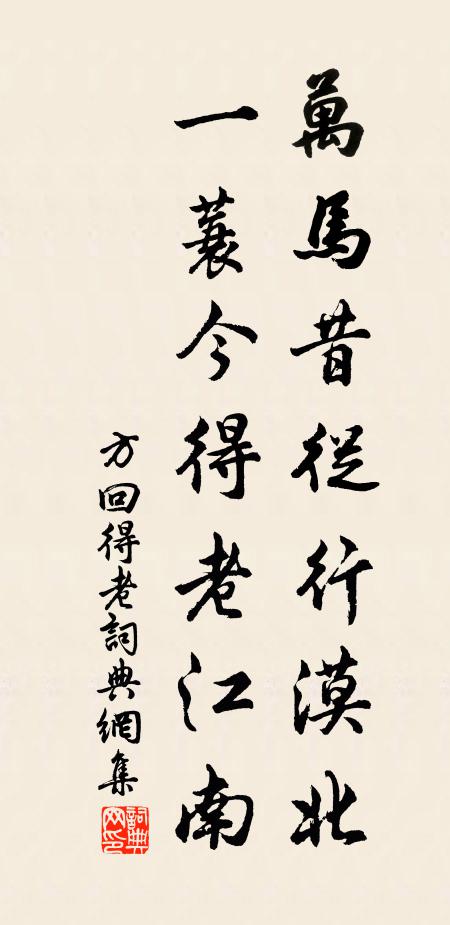 萬馬昔從行漠北
一蓑今得老江南
方回得老詞典網集
詞典網印